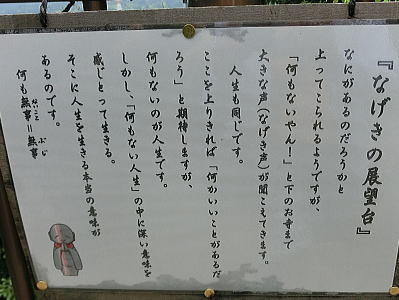 『なげきの展望台』
なにがあるのだろうかと
上ってこられるようですが、
「何もないやん！」と下のお寺まで
大きな声(なげき声)が聞こえてきます。
人生も同じです。
ここを上りきれば「何かいいことがあるだ
ろう」と期待しますが、
何もないのが人生です。
しかし、「何もない人生」の中に深い意味を
感じとって生きる。
そこに人生を生きる本当の意味が
あるのです。
何も無事＝無事